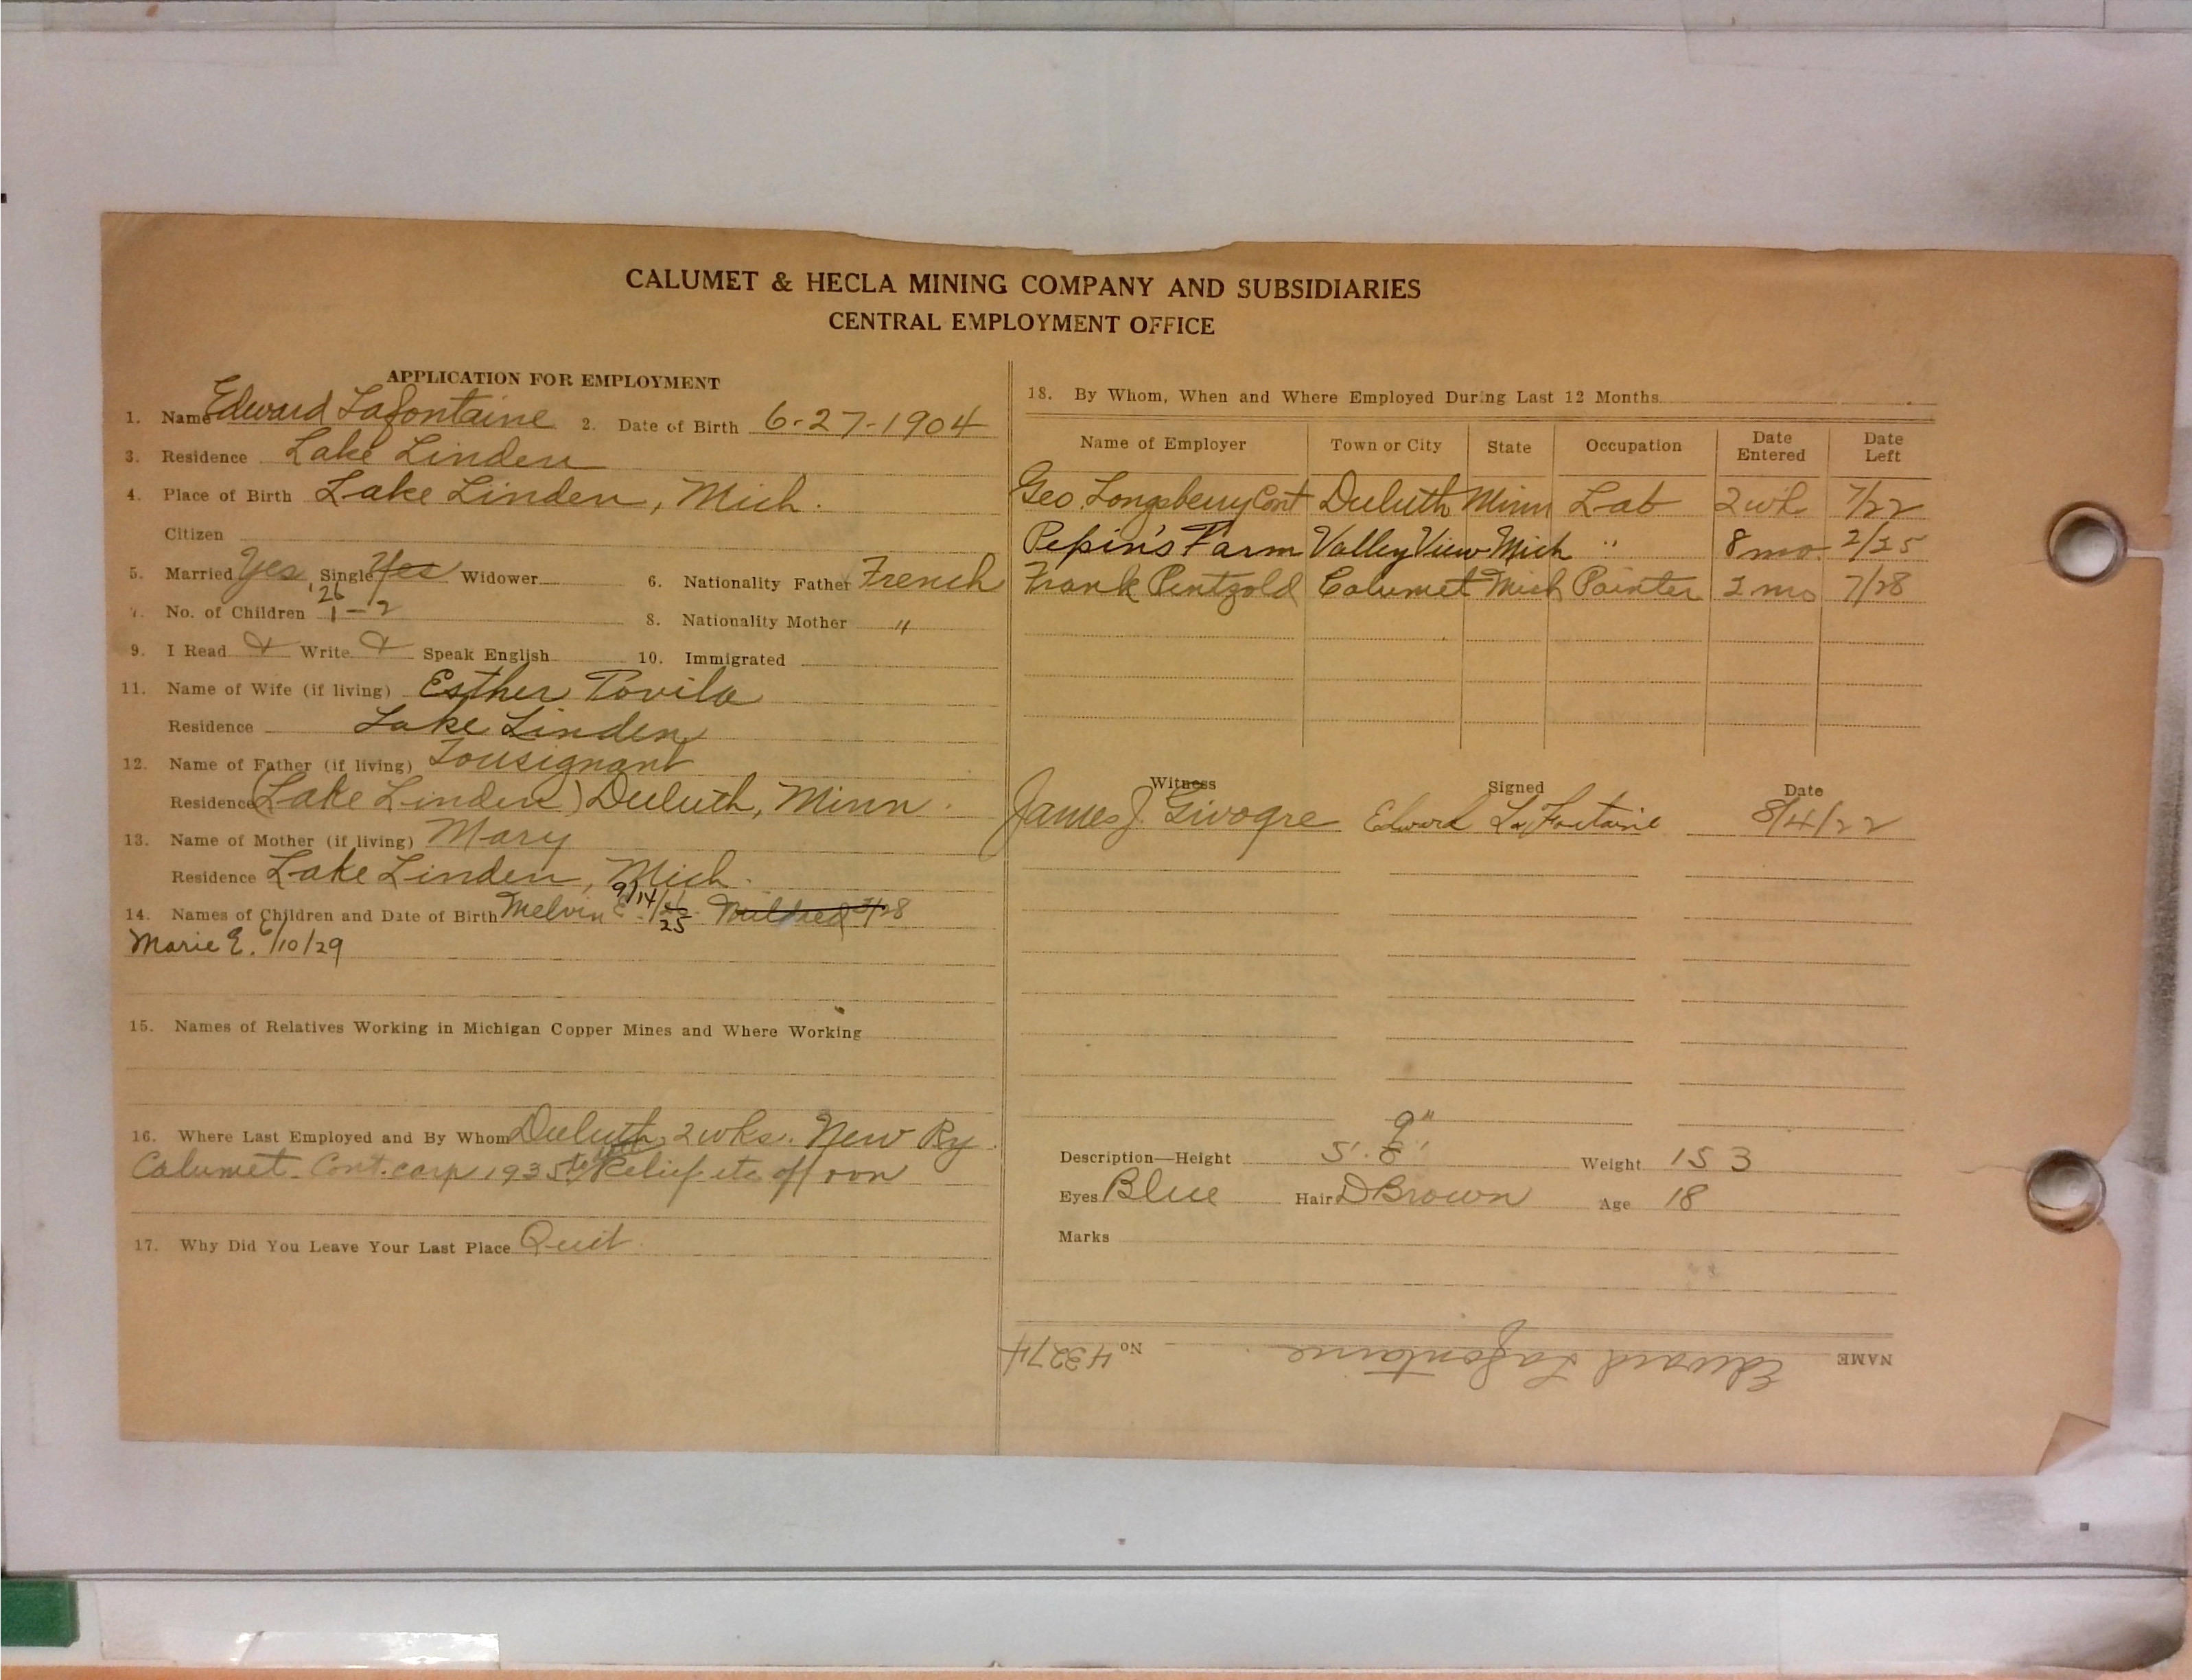 CALUMET & HECLA MINING COMPANY AND SUBSIDIARIES
CENTRAL EMPLOYMENT OFFICE
APPLICATION FOR EMPLOYMENT
1. Name Edward Lafontaine 2. Date of Birth 6-27-1904
3. Residence Lake Linden
4. Place of Birth Lake Linden, Mich.
Citizen
5. Married Yes Single Yes Widower 6. Nationality Father French
'26
7. No. of Children 1-2 8. Nationality Mother "
9. I Read & Write & Speak English 10. Immigrated
11. Name of Wife (if living) Esther Tovila
Residence Lake Linden
12. Name of Father (if living) Tousignant
Residence (Lake Linden) Duluth, Minn.
13. Name of Mother (if living) Mary
Residence Lake Linden, Mich.
14. Names of Children and Date of Birth Melvin E. 9/14/25 Mildred 28
Marie E. 6/10/29
15. Names of Relatives Working in Michigan Copper Mines and Where Working
16. Where Last Employed and By Whom Duluth, 2 wks. New Ry.
Calumet. Cont. corp 1935 Relief etc off & on
17. Why Did You Leave Your Last Place Quit
18. By Whom, When and Where Employed During Last 12 Months
Name of Employer Town or City State Occupation Date Entered Date Left
Geo. Longsberry Cont Duluth Minn Lab 2 wk 7/22
Pepin's Farm Valley View Mich " 8 mo. 2/25
Frank Pentzold Calumet Mich Painter 2 mo 7/28
Witness Signed Date
James J. Givogre Edward La Fontaine 8/4/22
9"
Description—Height 5'. 8" Weight 153
Eyes Blue Hair D Brown Age 18
Marks
NAME Edward Lafontaine No. 43274